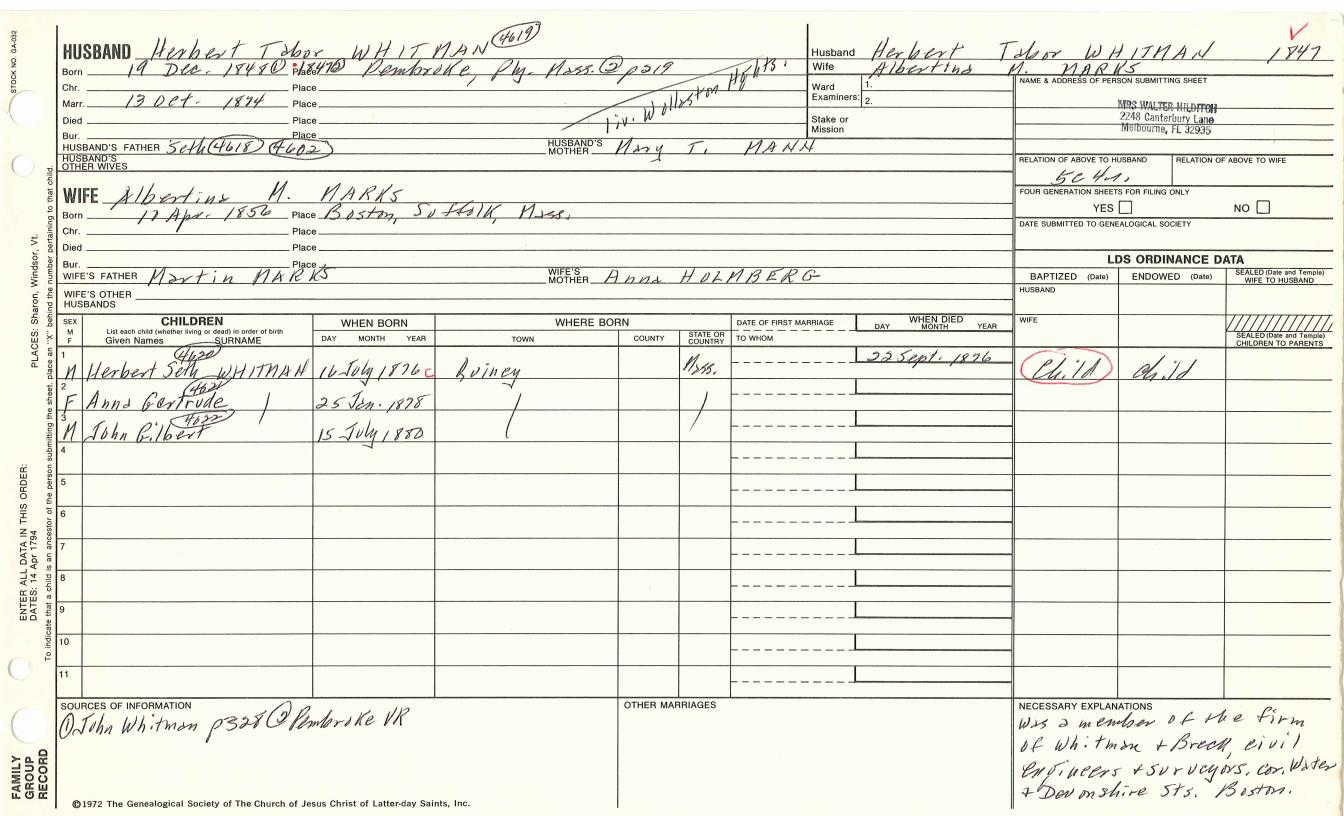 STOCK NO. GA-032
HUSBAND Herbert Tabor WHITMAN 4619
Born 19 Dec. 1848① 1847② Place Pembroke, Ply. Mass. ② p219
Chr. Place
Marr. 13 Oct. 1874 Place
liv. Wollaston Hghts.
Died Place
Bur. Place
HUSBAND'S FATHER Seth 4618 4602 HUSBAND'S MOTHER Mary T. MANN
HUSBAND'S OTHER WIVES
WIFE Albertina M. MARKS
Born 17 Apr. 1856 Place Boston, Suffolk, Mass.
Chr. Place
Died Place
Bur. Place
WIFE'S FATHER Martin MARKS WIFE'S MOTHER Anna HOLMBERG
WIFE'S OTHER HUSBANDS
Husband Herbert Tabor WHITMAN 1847
Wife Albertina M. MARKS
Ward Examiners: 1.
2.
Stake or Mission
NAME & ADDRESS OF PERSON SUBMITTING SHEET
MRS WALTER HILDITCH
2248 Canterbury Lane
Melbourne, FL 32935
RELATION OF ABOVE TO HUSBAND RELATION OF ABOVE TO WIFE
5c4r.
FOUR GENERATION SHEETS FOR FILING ONLY
YES NO
DATE SUBMITTED TO GENEALOGICAL SOCIETY
LDS ORDINANCE DATA
BAPTIZED (Date) ENDOWED (Date) SEALED (Date and Temple) WIFE TO HUSBAND
HUSBAND
WIFE
SEALED (Date and Temple) CHILDREN TO PARENTS
SEX M F CHILDREN WHEN BORN WHERE BORN DATE OF FIRST MARRIAGE WHEN DIED
List each child (whether living or dead) in order of birth
Given Names SURNAME DAY MONTH YEAR TOWN COUNTY STATE OR COUNTRY TO WHOM DAY MONTH YEAR
4620
1 M Herbert Seth WHITMAN 16 July 1876 c Quincy Mass. 22 Sept. 1876 Child Child
4621
2 F Anna Gertrude 25 Jan. 1878
4622
3 M John Gilbert 15 July 1880
4
5
6
7
8
9
10
11
SOURCES OF INFORMATION
① John Whitman p328 ② Pembroke VR
OTHER MARRIAGES
NECESSARY EXPLANATIONS
Was a member of the firm
of Whitman + Breck, civil
engineers + surveyors, cor. Water
+ Devonshire Sts. Boston.
©1972 The Genealogical Society of The Church of Jesus Christ of Latter-day Saints, Inc.
FAMILY GROUP RECORD
ENTER ALL DATA IN THIS ORDER:
DATES: 14 Apr 1794
PLACES: Sharon, Windsor, Vt.
To indicate that a child is an ancestor of the person submitting the sheet, place an "X" behind the number pertaining to that child.